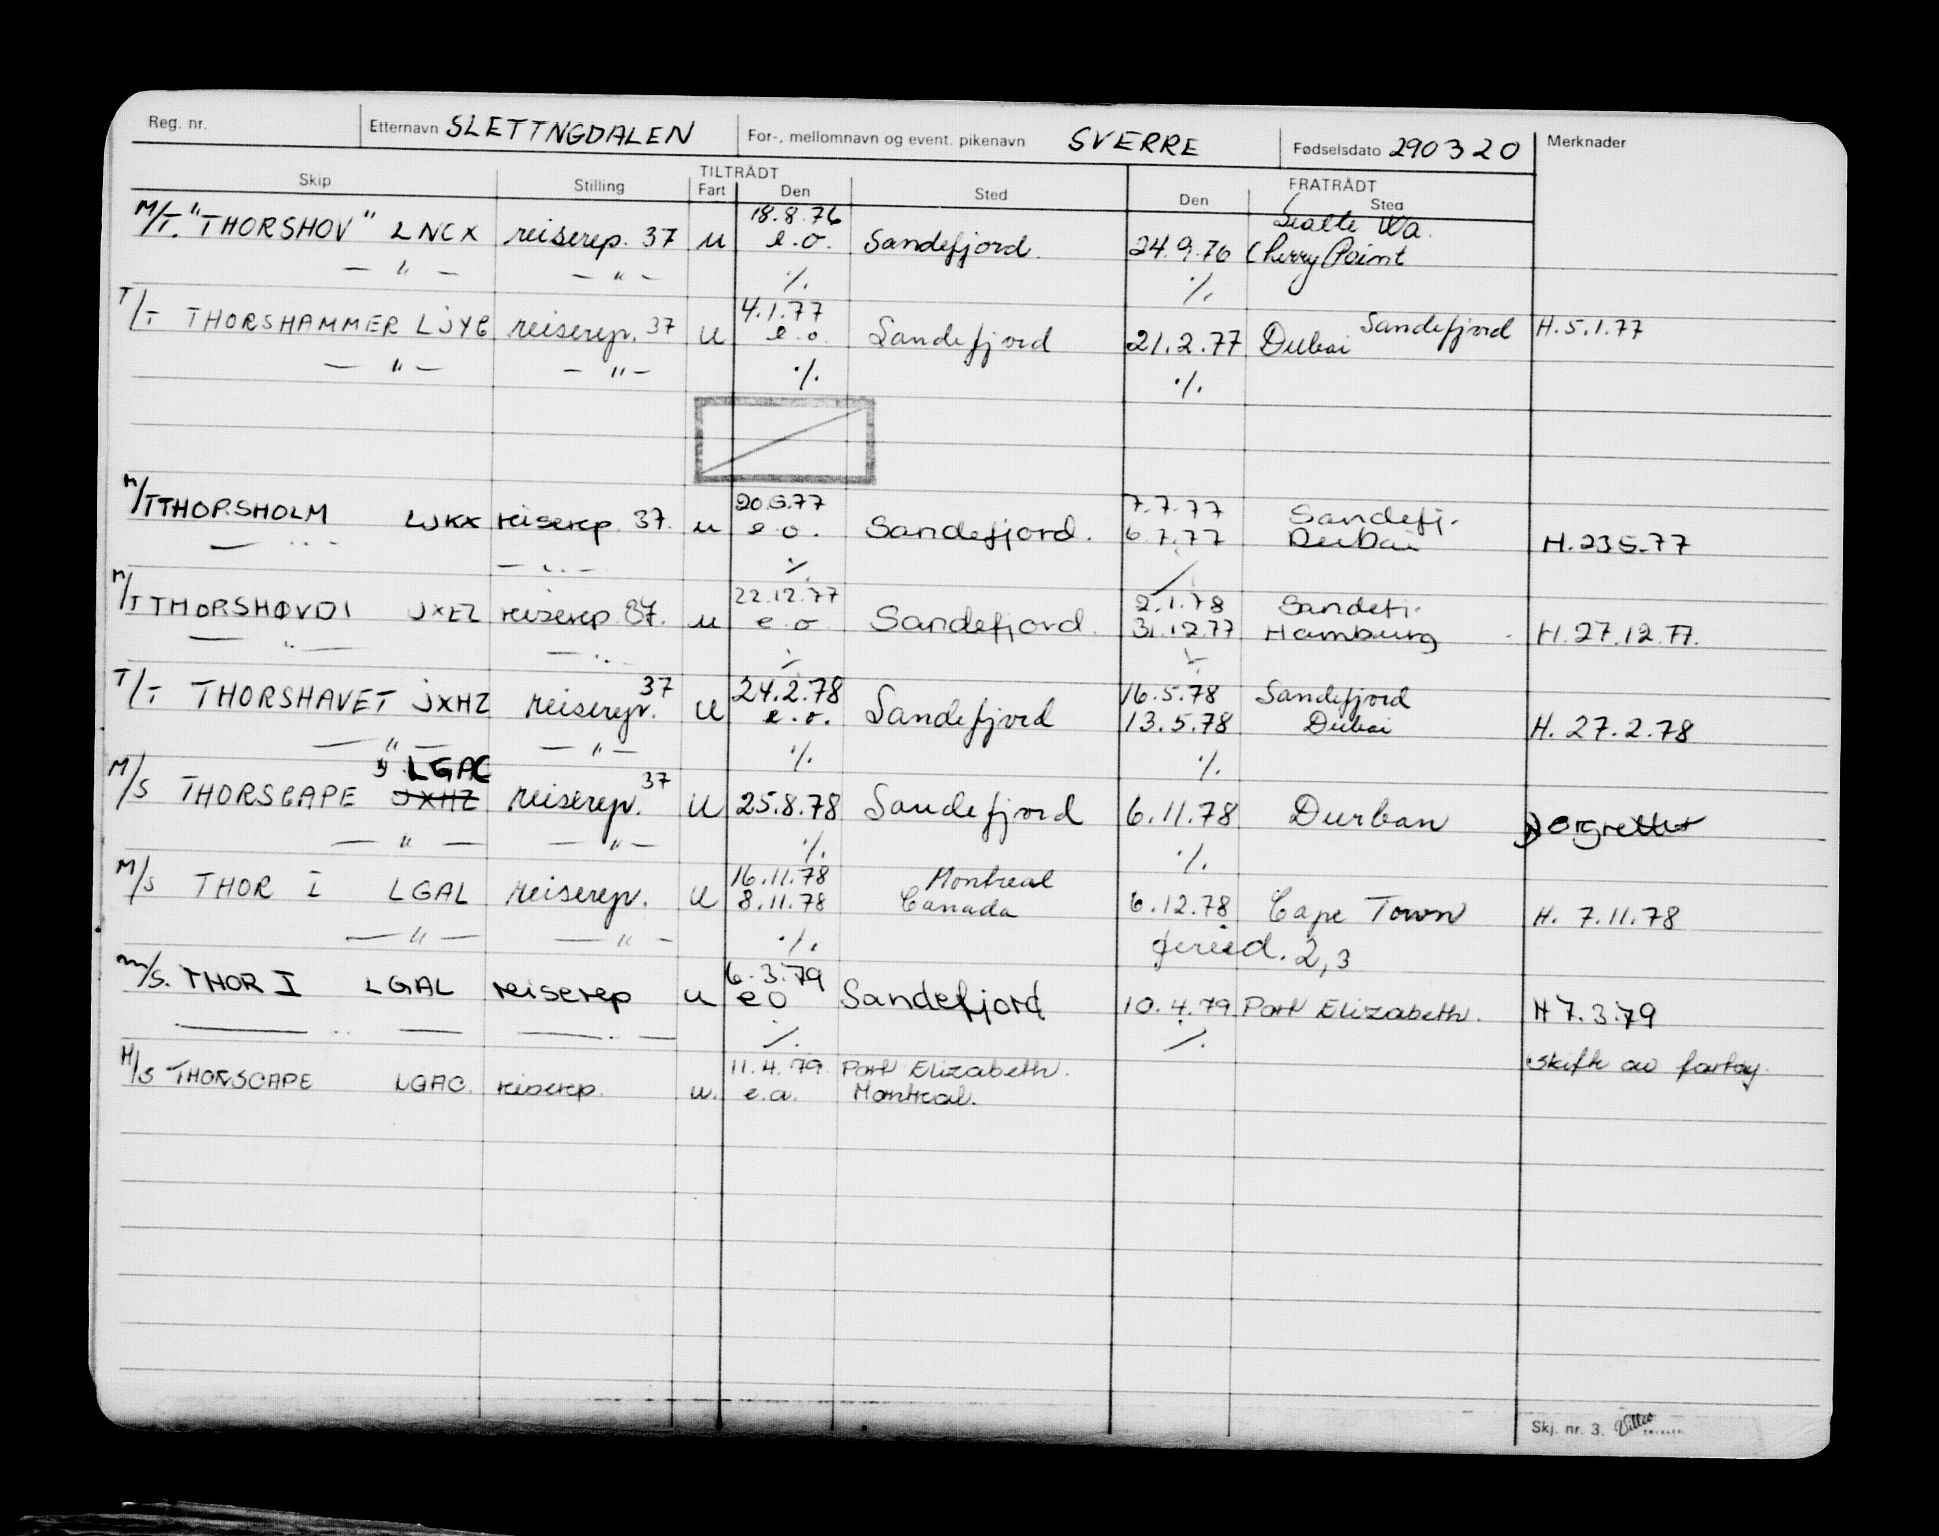 Reg. nr. Etternavn SLETTNGDALEN For-, mellomnavn og event. pikenavn SVERRE Fødselsdato 290320 Merknader
TILTRÅDT FRATRÅDT
Skip Stilling Fart Den Sted Den Sted
18.8.76 Sealte Wa.
M/T. "THORSHOV" LNCX reiserep. 37 u e.o. Sandefjord. 24.9.76 Cherry Point
— " — — " — ./. ./.
4.1.77 Sandefjord H. 5.1.77
T/T THORSHAMMER LJYG reiserep. 37 U e.o. Sandefjord 21.2.77 Dubai
— " — — " — ./. ./.
20.5.77 7.7.77 Sandefj.
M/T THORSHOLM LJKX reiserep 37. u e.o. Sandefjord. 6.7.77 Dubai H. 23.5.77
— " — — " — ./. ./.
22.12.77 2.1.78 Sandefj.
M/T THORSHØVDI JXEZ reiserep 37. u e.o Sandefjord. 31.12.77 Hamburg H. 27.12.77.
— " — — " — ./. ./.
37 24.2.78 16.5.78 Sandefjord
T/T THORSHAVET JXHZ reiserep. U e.o. Sandefjord 13.5.78 Dubai H. 27.2.78
— " — — " — ./. ./.
LGAC 37
M/S THORSCAPE JXHZ reiserep. U 25.8.78 Sandefjord 6.11.78 Durban
— " — — " — ./. ./.
16.11.78 Montreal
M/S THOR I LGAL reiserep. U 8.11.78 Canada 6.12.78 Cape Town H. 7.11.78
— " — — " — ./. 2,3
6.3.79
M/S. THOR I LGAL reiserep u eo Sandefjord 10.4.79 Port Elizabeth. H 7.3.79
— " — — " — ./. ./.
11.4.79. Port Elizabeth. skifte av fartøy.
M/S THORSCAPE LGAC. reiserep. u. e.a. Montreal.
Skj. nr. 3.